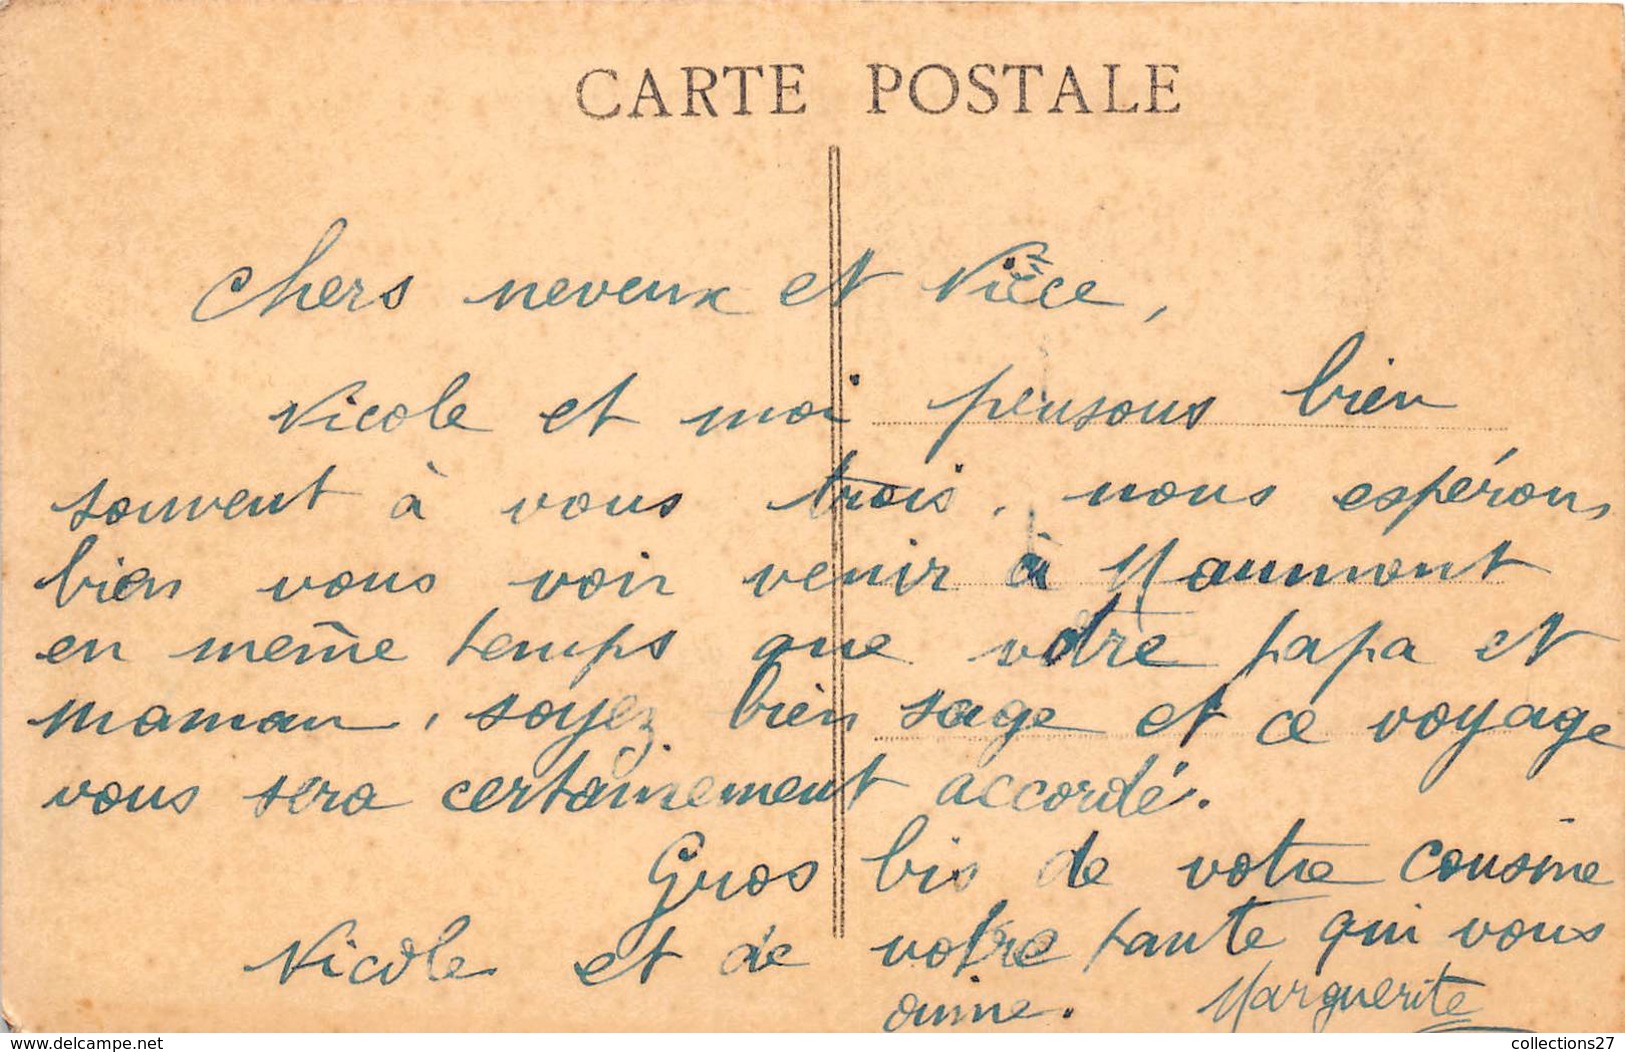 CARTE POSTALE
Chers neveux et Nièce,
Nicole et moi pensons bien
souvent à vous trois. nous espérons
bien vous voir venir à Maumont
en même temps que votre papa et
maman, soyez bien sage et ce voyage
vous sera certainement accordé.
Gros bis de votre cousine
Nicole et de votre tante qui vous
aime. Marguerite
delcampe.net
collections27